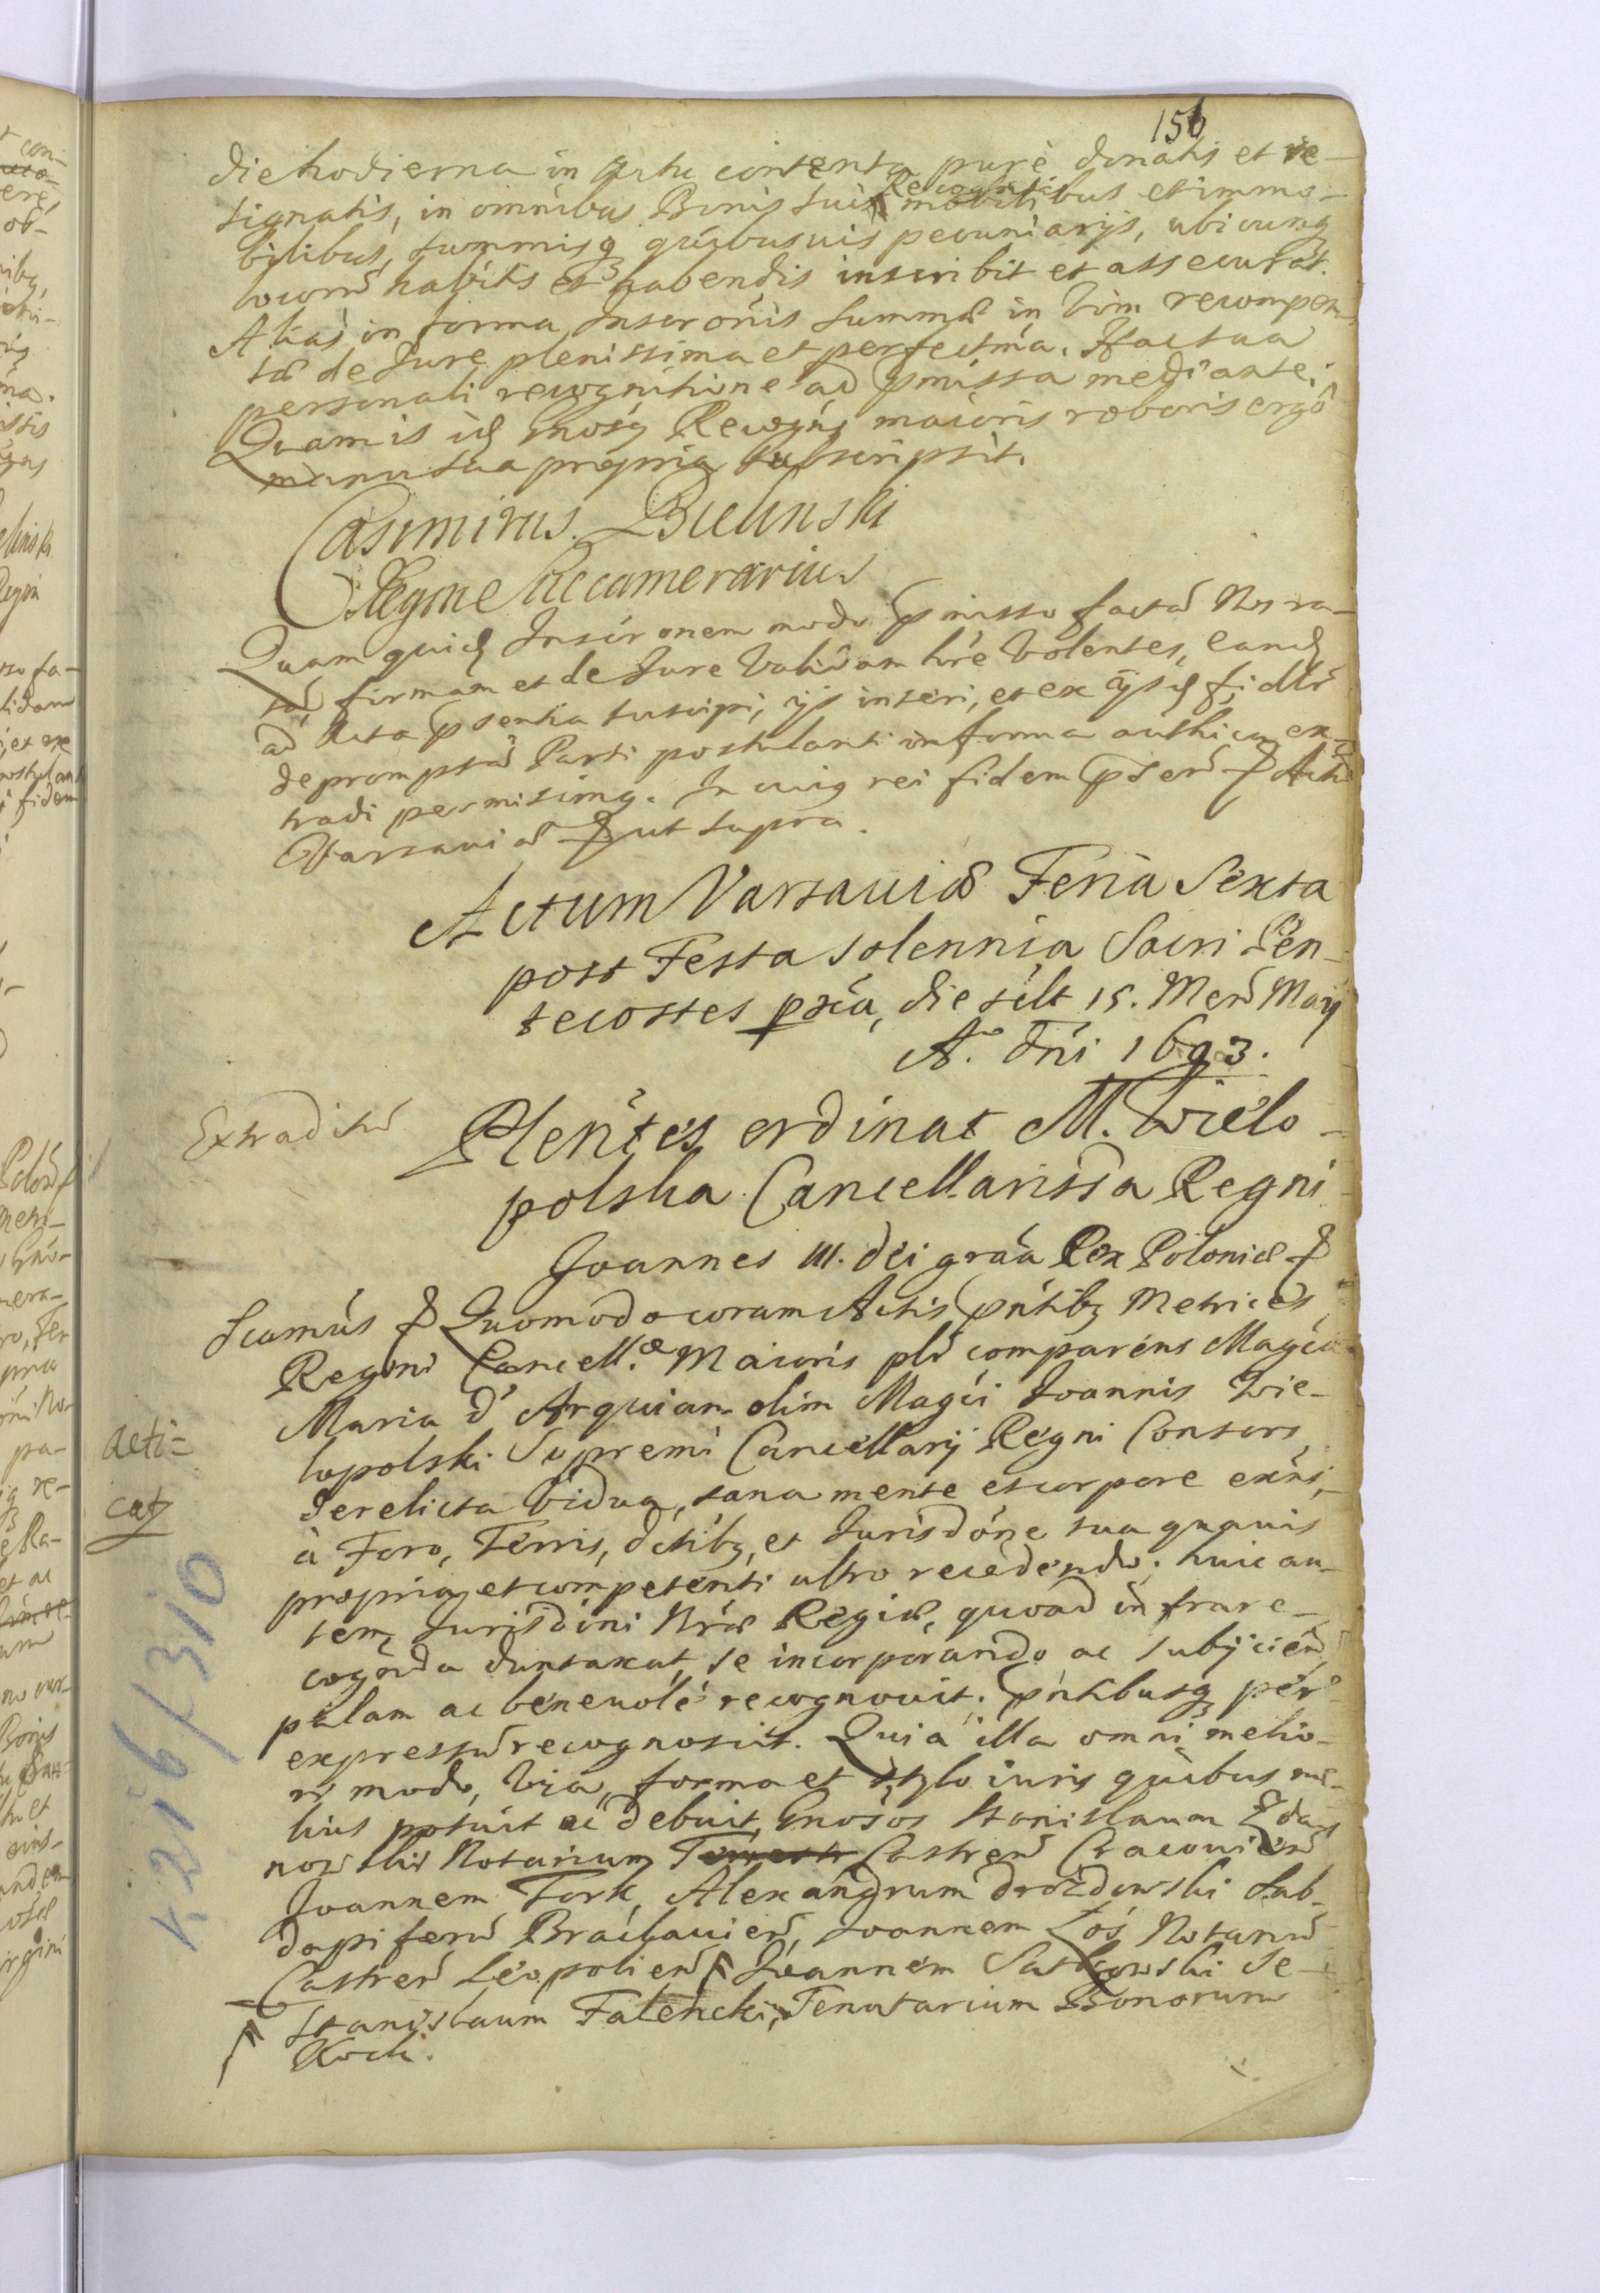 156
die hodierna in Actu contenta, purè donatis et re-
signatis, in omnibus Bonis suis Recognitis mobilibus et immo-
bilibus, summisq; quibusuis pecuniarijs, ubicunq;
locorũ habitis et habendis inscribit et assecurat.
Alias in forma Inscrõnis summæ in Vim recompen-
sæ de Jure plenissima et perfectma. Stactua
personali recognitione ad pmissa mediante.
Quam is idẽ Gnosq Recogns maioris roboris ergô
manu sua propria subscripsit.
Casimirus Bielinski
Regni Succamerarius
Quam quidẽ Inscronem modo pmisso factã Nos ra-
tã, firmam et de Jure Validam hre Volentes, eandẽ
ad Acta psentia suscipi, ijs inseri, et ex ijsdẽ fidlr
depromptã Parti postulanti in forma authica ex-
tradi permisimq. In cuiq rei fidem pseñ & Actũ
Warsauiæ & ut supra.
Actum Varsauiæ Feria Sexta
post Festa solennia Sacri Pen-
tecostes pxia, die silt 15. Meñ Maij
Aº. Dñi 1693.
Extraditũ
Plentes ordinat M. Wielo-
polska Cancellarissa Regni
Joannes III. dei graã Rex Poloniæ &
Scamús & Quomodo coram Actis pntibq Metrices
Regni Cancell.æ Maioris plr comparens Magca
Maria d' Arquian olim Magci Joannis Wie-
lopolski Supremi Cancellarij Regni Consors,
derelicta Vidua, sana mente et corpore exns,
à Foro, Terris, dctibq, et Jurisdone sua quauis
propria, et competenti ultro recedendo; huic au-
tem Jurisdoni Nræ Regiæ, quoad infra re-
cognda duntaxat, se incorporando ac subijcieñ,
palam ac beneuolè recognouit; pntibusq per
expressũ recognoscit. Quia illa omni melio-
ri modo, Via, forma et stylo iuris quibus me-
lius potuit ac debuit, Gnosos Stanislaum Zda-
nowski Notarium Castreñ Cracovieñ
Joannem Fork, Alexandrum Drozdowski Sub-
dapiferũ Braclauieñ, Joannem Łoś Notariũ
Castreñ Leopolieñ Joannem Sutkowski Se-
Stanislaum Falencki, Tenutarium Bonorum
Kock.
Acti-
cat
421b/310